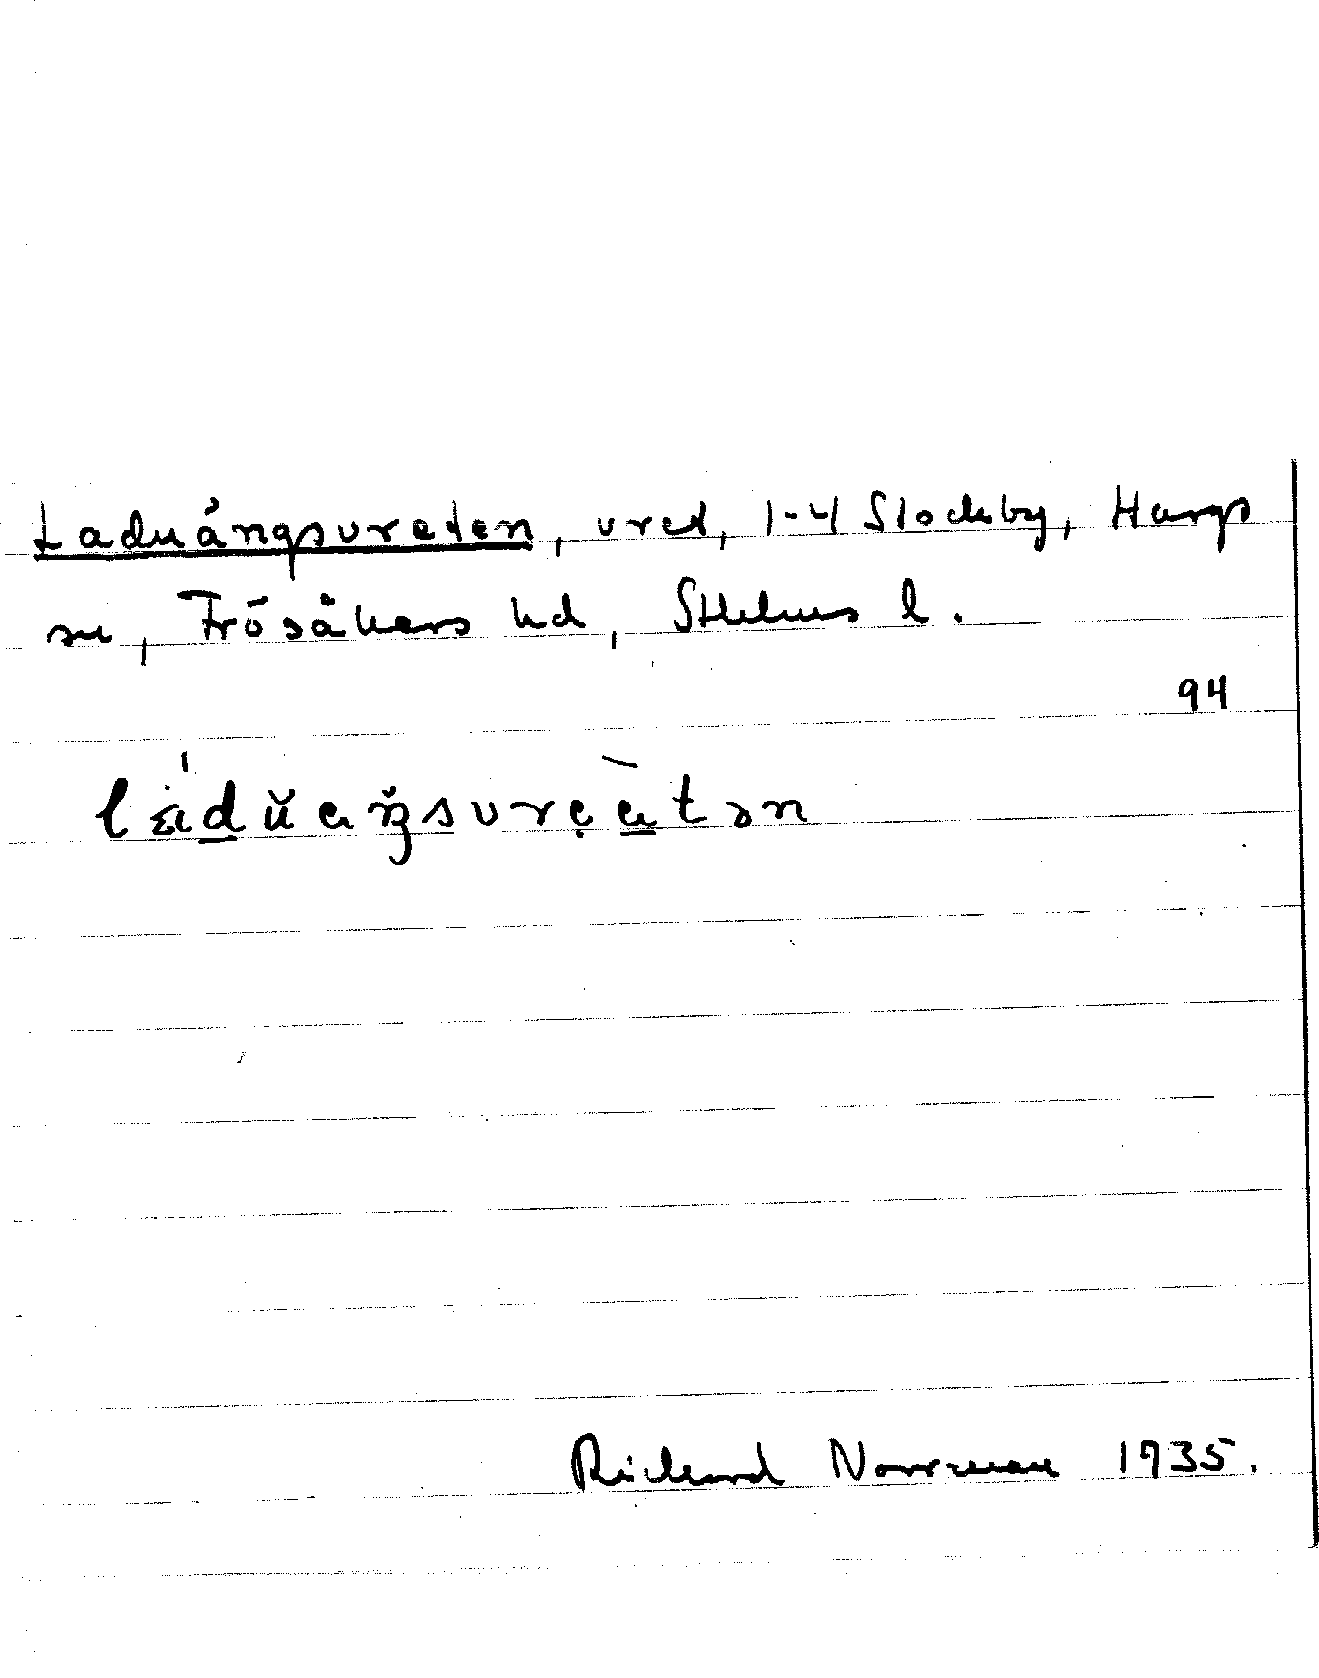 Laduängsvreten, vret, 1-4 Slockby, Hargs
sn, Frösåkers hd, Sthlms l.
94
Rickard Norrman 1935.